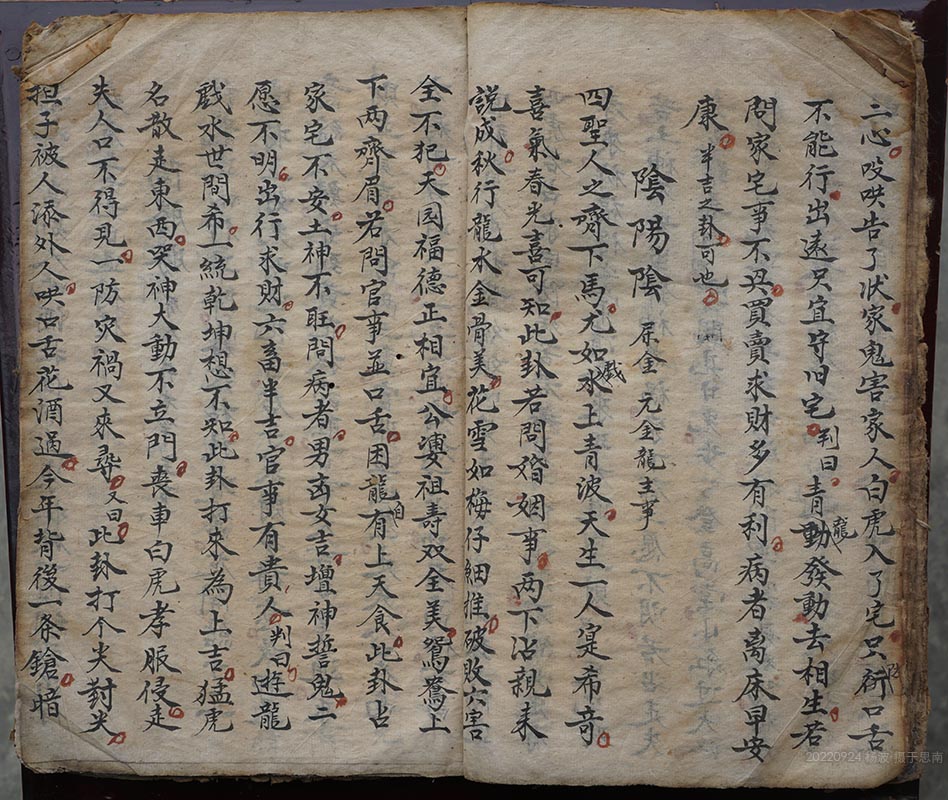 二心咬哄告了状家鬼害家人白虎入了宅只衙口舌
不能行出遠只宜守旧宅判曰青龍動發動去相生若
問家宅事不丑買賣求財多有利病者离床早安
康半吉之卦可也
陰陽陰 屎金元金龍主事
四聖人之齊下馬尤如戲水上青波天生一人寔希奇
喜氣春光喜可知此卦若問婚姻事两下沾親来
說成秋行龍水金骨美花雪如梅仔細推破敗六害
全不犯天園福德正相宜公婆祖壽双全美鴛鴦上
下两齊眉若問官事並口舌困龍自有上天食此卦占
家宅不安土神不旺問病者男凶女吉壇神誓鬼二
愿不明出行求財六畜半吉官事有貴人判曰遊龍
戯水世間希一統乾坤想不知此卦打來為上吉猛虎
名散走東西哭神大動不立門丧車白虎孝服侵走
失人口不得見一防灾禍又來尋又曰此卦打个尖對尖
担子被人添外人哄舌花酒過今年背後一条鎗暗
20220924 摄于思南